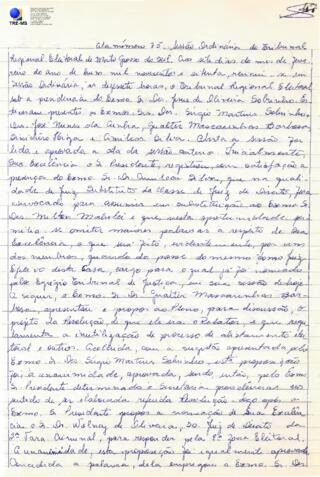 TRE-MS
Ata número 75 - Sessão Ordinária do Tribunal
Regional Eleitoral de Mato Grosso do Sul. Aos sete dias do mês de
de um mil novecentos e oitenta, reuniu-se em
sessão ordinária, às dezesseis horas, o Tribunal Regional Eleitoral
sob a presidência do Exmo. Sr. Des. Jesus de Oliveira Sobrinho. Es-
tiveram presentes os Exmos. Srs. Drs. Sérgio Martins Sobrinho,
José Nunes da Cunha, Gualter Mascarenhas Barbosa,
e Amilcar Silva. Aberta a sessão foi
lida e aprovada a ata da sessão anterior. Inicialmente,
Sua Excelência o Sr. Presidente, registrou com satisfação a
presença do Exmo. Sr. Dr. Amilcar Silva, que na quali-
dade de Juiz Substituto da classe de Juiz de Direito, fora
convocado para assumir em substituição ao Exmo. Sr.
Des. Milton Malulei e que, nesta oportunidade per-
mitia-se omitir maiores palavras a respeito de Sua
Excelência, o que será feito, evidentemente, por um
dos membros, quando da posse do mesmo como Juiz
Efetivo desta Casa, cargo para o qual já foi nomeado
pelo Egrégio Tribunal de Justiça, em sua sessão de hoje.
A seguir, o Exmo. Sr. Dr. Gualter Mascarenhas Bar-
bosa, apresentou e propôs ao Pleno, para discussão, o
projeto da Resolução, de que ele era o Relator, e que regu-
lamenta a inutilização de processo de alistamento elei-
toral e outros. Acolhida, com emendas apresentadas pelo
Exmo. Sr. Des. Sérgio Martins Sobrinho, esta proposição
foi à unanimidade, aprovada, sendo então, pelo Exmo.
Sr. Presidente determinado à Secretaria providências no
sentido de ser elaborada referida Resolução. Logo após o
Exmo. Sr. Presidente propôs a nomeação de Sua Excelên-
cia o Sr. Dr. Wolney de Oliveira, DD. Juiz de Direito da
2ª Vara Criminal, para responder pela 8ª Zona Eleitoral.
À unanimidade, esta proposição foi igualmente aprovada.
Concedida a palavra, dela empregou o Exmo. Sr. Des.